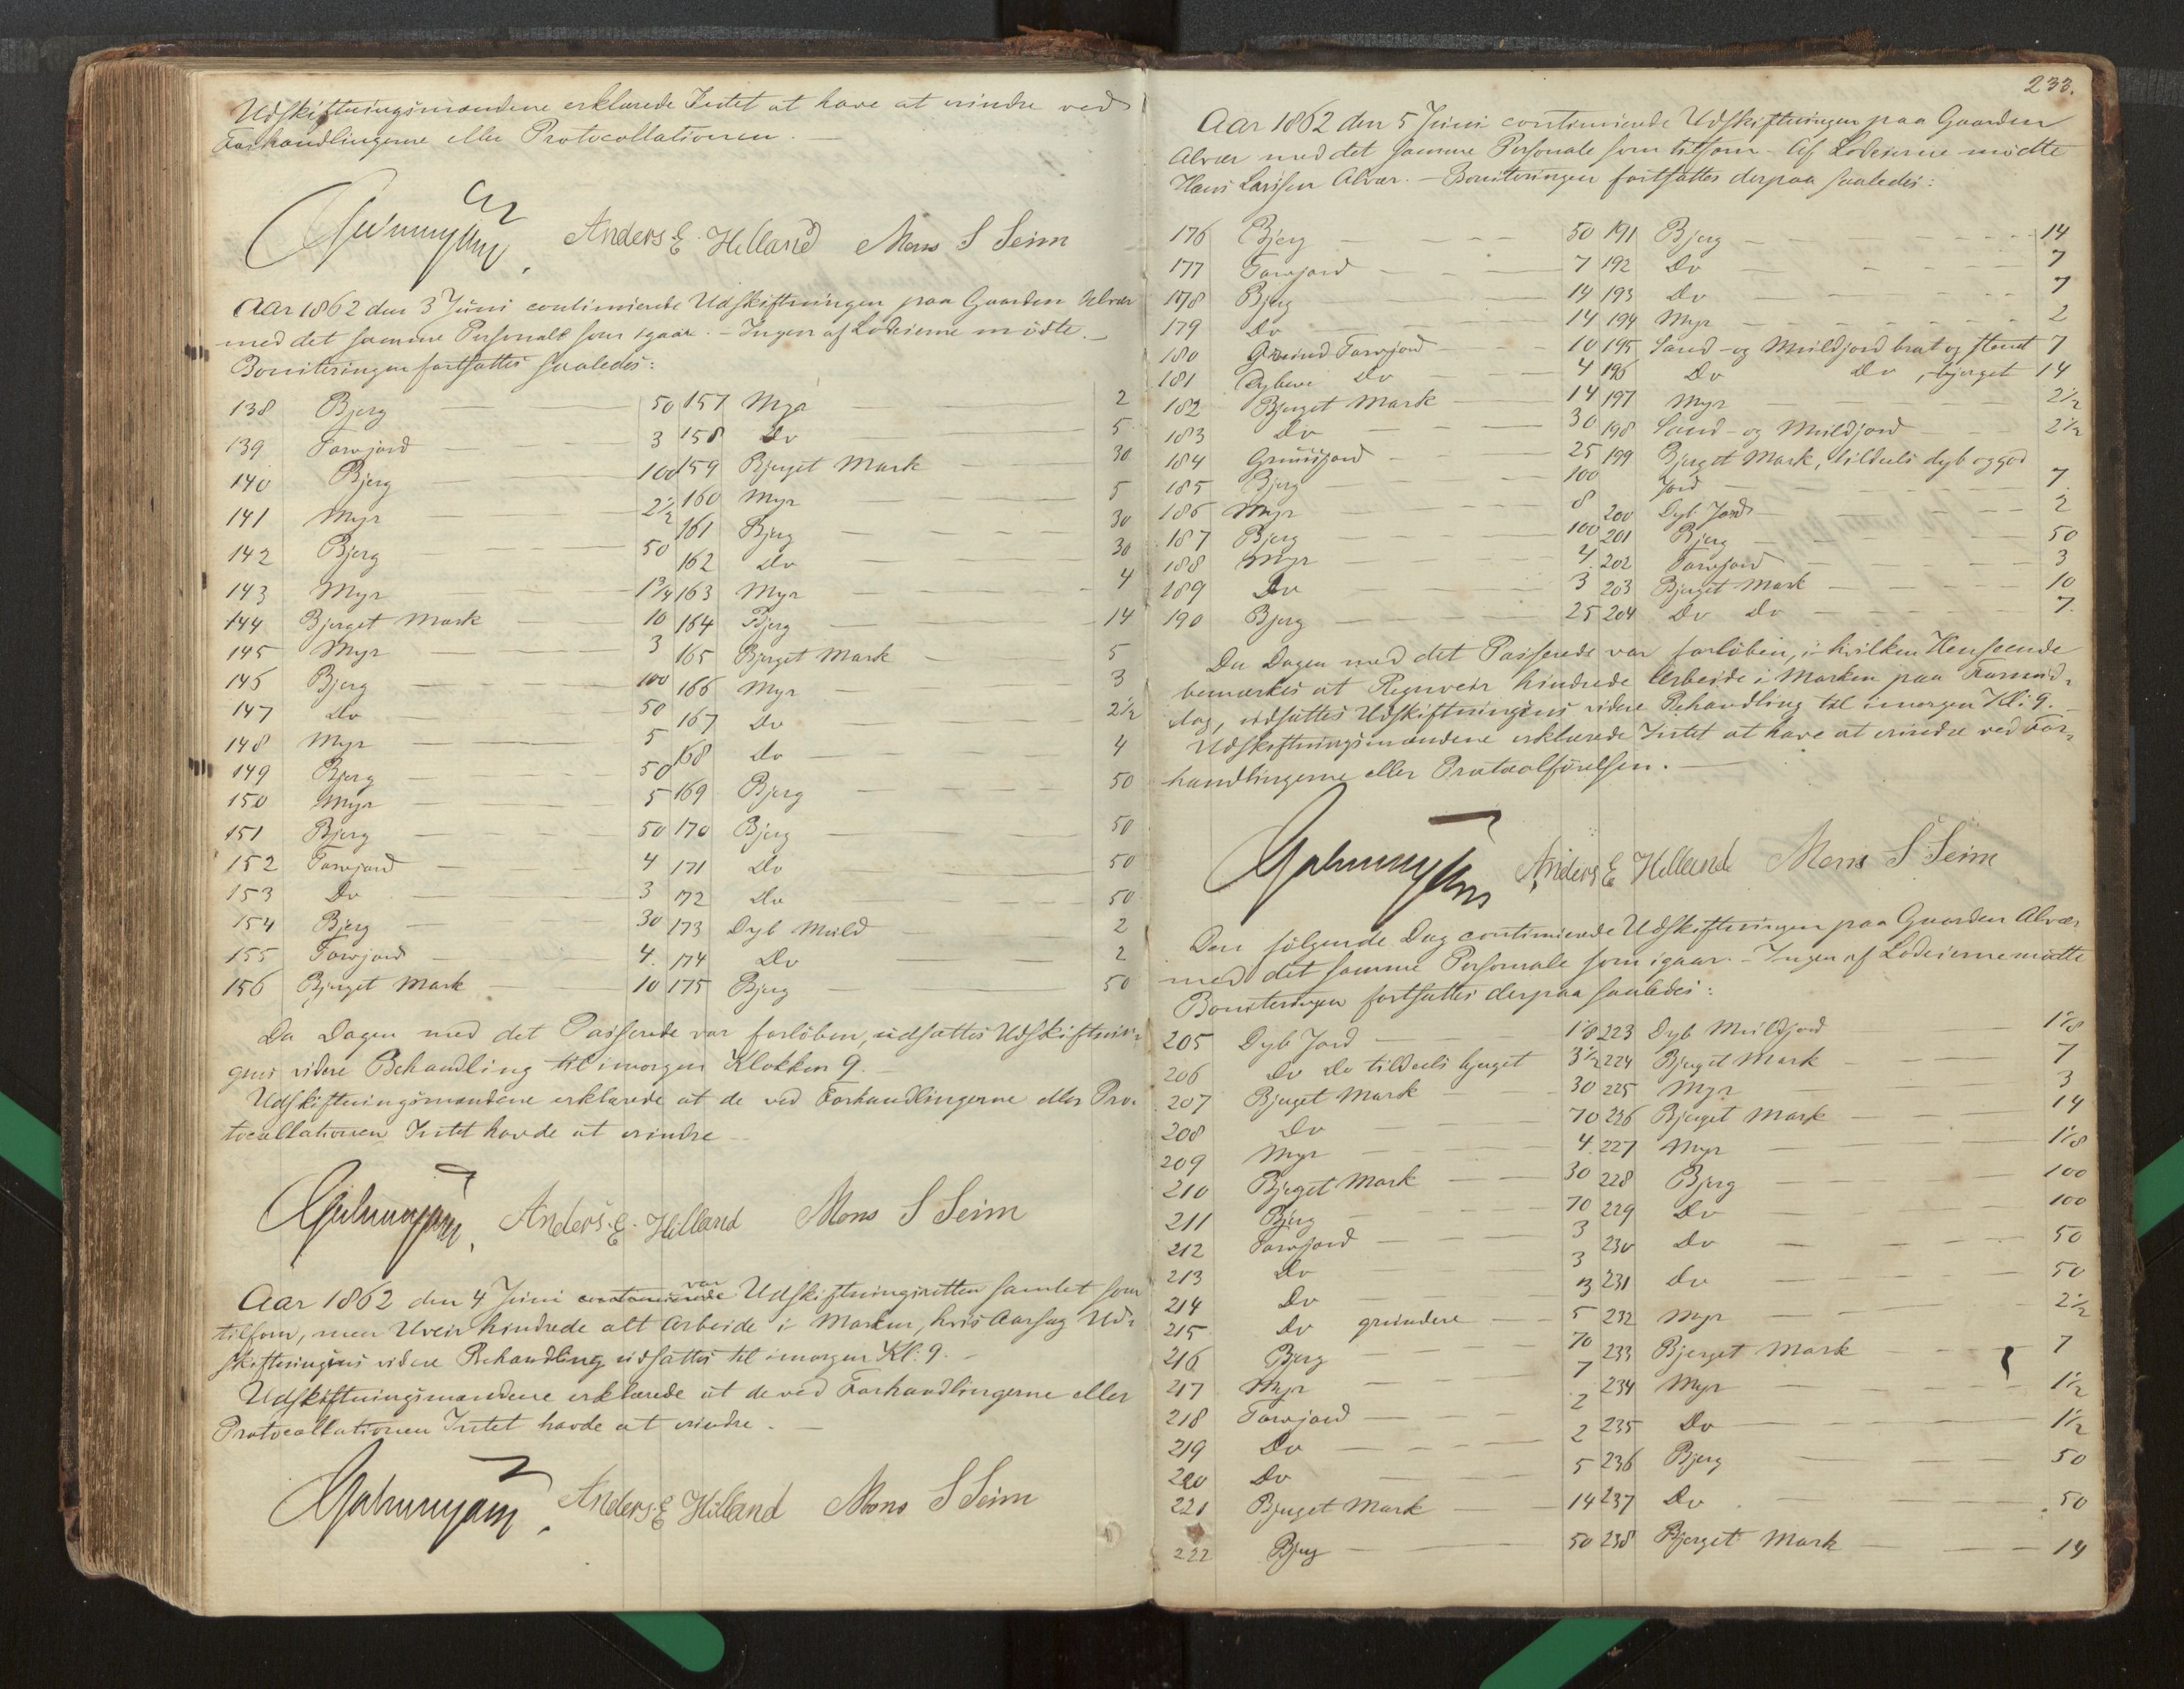 Udskiftningsmændene erklærede Intet at have at erindre ved
Forhandlingerne eller Protocollationen. —
Anders E Helland Mons S Seim
Aar 1862 den 3 Juni continuerede Udskiftningen paa Gaarden Alvær
med det samme Personale som igaar. – Ingen af Lodeierne mødte. –
Boniteringen fortsattes saaledes:
138 Bjerg — 50 157 Myr — 2
139 Torvjord — 3 158 Do — 5
140 Bjerg — 100 159 Bjerget Mark — 30
141 Myr — 2½ 160 Myr — 5
142 Bjerg — 50 161 Bjerg — 30
143 Myr — 1¾ 162 Do — 30
144 Bjerget Mark — 10 163 Myr — 4
145 Myr — 3 164 Bjerg — 14
146 Bjerg — 100 165 Bjerget Mark — 5
147 Do — 50 166 Myr — 3
148 Myr — 5 167 Do — 2½
149 Bjerg — 50 168 Do — 4
150 Myr — 5 169 Bjerg — 50
151 Bjerg — 50 170 Bjerg — 50
152 Torvjord — 4 171 Do — 50
153 Do — 3 172 Do — 50
154 Bjerg — 30 173 Dyb Muld — 2
155 Torvjord — 4 174 Do — 2
156 Bjerget Mark — 10 175 Bjerg — 50
Da Dagen med det Passerede var forløben, udsattes Udskiftnin-
gens videre Behandling til imorgen Klokken 9. –
Udskiftningsmændene erklærede at de ved Forhandlingerne eller Pro-
tocollationen Intet havde at erindre –
Anders. E. Helland Mons S Seim
Aar 1862 den 4 Juni continuerede var Udskiftningsretten samlet som
tilforn, men Uveir hindrede alt Arbeide i Marken, hvis Aarsag Ud-
skiftningens videre Behandling udsattes til imorgen Kl: 9. –
Udskiftningsmændene erklærede at de ved Forhandlingerne eller
Protocollationen Intet havde at erindre. –
Anders. E Helland Mons S Seim
233.
Aar 1862 den 5 Juni continuerede Udskiftningen paa Gaarden
Alvær med det samme Personale som tilforn. – Af Lodeierne mødte
Hans Larssen Alvær. – Boniteringen fortsattes derpaa saaledes:
176 Bjerg — 50 191 Bjerg — 14
177 Torvjord — 7 192 Do — 7
178 Bjerg — 14 193 Do — 7
179 Do — 14 194 Myr — 2
180 Grund Torvjord — 10 195 Sand- og Muldjord brat og stenet 7
181 Dybere Do — 4 196 Do Do, bjerget 14
182 Bjerget Mark — 14 197 Myr — 2½
183 Do — 30 198 Sand- og Muldjord — 2½
184 Gruusjord — 25 199 Bjerget Mark, tildeels dyb og god
185 Bjerg — 100 Jord — 7.
186 Myr — 8 200 Dyb Jord — 2
187 Bjerg — 100 201 Bjerg — 50
188 Myr — 4. 202 Torvjord — 3
189 Do — 3 203 Bjerget Mark — 10
190 Bjerg — 25 204 Do Do — 7.
Da Dagen med det Passerede var forløben, i hvilken Henseende
bemærkes at Regnveir hindrede Arbeide i Marken paa Formid-
dag, udsattes Udskiftningens videre Behandling til imorgen Kl: 9. –
Udskiftningsmændene erklærede Intet at have at erindre ved For-
handlingerne eller Protocolførelsen. —
Anders E Helland Mons S Seim
Den følgende Dag continuerede Udskiftningen paa Gaarden Alvær
med det samme Personale som igaar. – Ingen af Lodeierne mødte
Boniteringen fortsattes derpaa saaledes:
205 Dyb Jord — 1⅛ 223 Dyb Muldjord — 1⅛
206 Do Do tildeels bjerget 3½ 224 Bjerget Mark — 7
207 Bjerget Mark — 30 225 Myr — 3
208 Do — 70 226 Bjerget Mark — 14
209 Myr — 4. 227 Myr — 1⅛
210 Bjerget Mark — 30 228 Bjerg — 100
211 Bjerg — 70 229 Do — 100
212 Torvjord — 3 230 Do — 50
213 Do — 3 231 Do — 50
214 Do — 3 232 Myr — 2½
215 Do grundere — 5 233 Bjerget Mark — 7
216 Bjerg — 70 234 Myr — 1½
217 Myr — 7 235 Do — 1½
218 Torvjord — 2 236 Bjerg — 50
219 Do — 2 237 Do — 50
220 Do — 5 238 Bjerget Mark — 14
221 Bjerget Mark — 14
222 Bjerg — 50